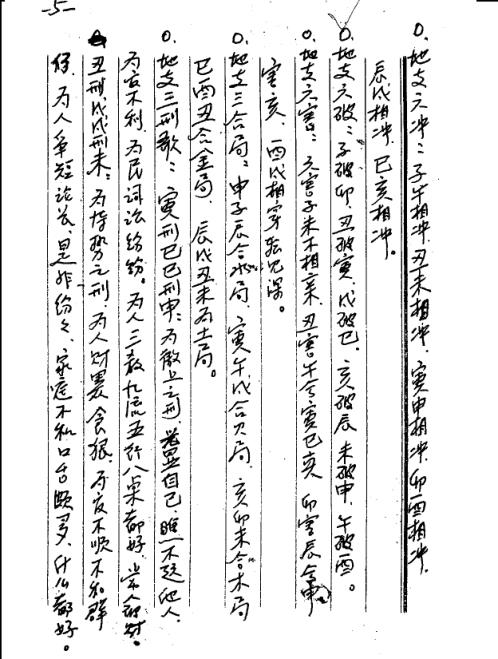 -5-
0.地支六冲:子午相冲.丑未相冲.寅申相冲.卯酉相冲.
辰戌相冲.巳亥相冲。
0.地支六破:子破卯.丑破寅.戌破巳.亥破辰.未破申.午破酉。
0.地支六害:六害子未不相亲.丑害午兮寅巳亥.卯害辰兮申
害亥.酉戌相穿
0.地支三合局:申子辰合水局.寅午戌合火局.亥卯未合木局
巳酉丑合金局.辰戌丑未为土局。
0.地支三刑歌:寅刑巳巳刑申:为自己.瞧不起他人.
为官不利.为民词讼纷纷。为人三教九流五行八桌都好.
丑刑戌戌刑未:为恃势之刑.为人财累贪狠.为友不顺不和群
为人争短论长.是非纷々.家庭不和口舌颇多.什么都好。